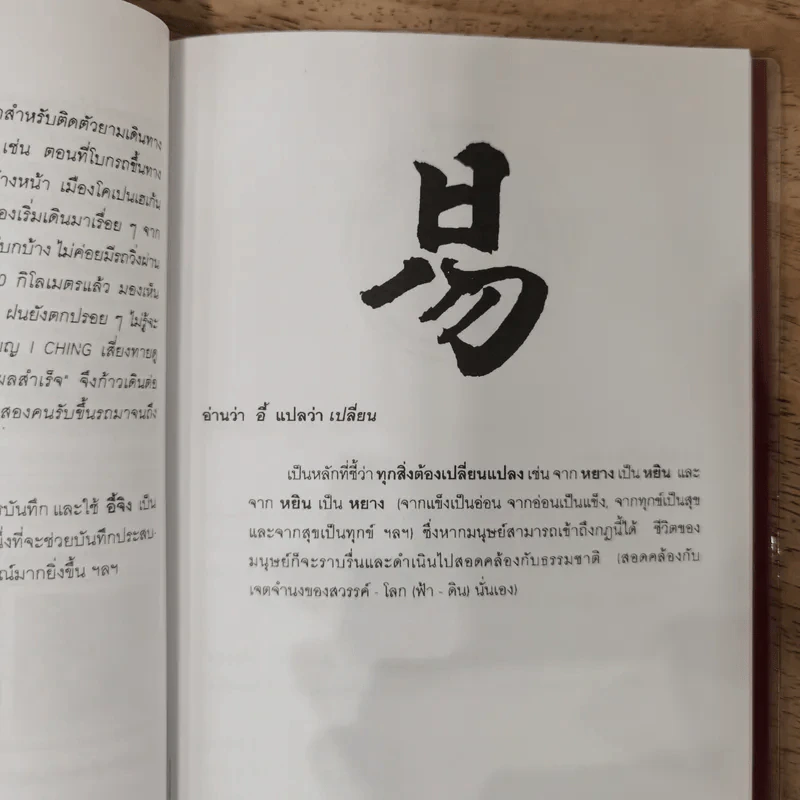 สำหรับติดตัวยามเดินทาง
เช่น ตอนที่โบกรถขึ้นทาง
้างหน้า เมืองโคเปนเฮเก้น
องเริ่มเดินมาเรื่อย ๆ จาก
บกบ้าง ไม่ค่อยมีรถวิ่งผ่าน
0 กิโลเมตรแล้ว มองเห็น
ฝนยังตกปรอย ๆ ไม่รู้จะ
ญ I CHING เสี่ยงทายดู
ผลสำเร็จ" จึงก้าวเดินต่อ
สองคนรับขึ้นรถมาจนถึง
บันทึก และใช้ อี้จิง เป็น
งที่จะช่วยบันทึกประสบ-
ณ์มากยิ่งขึ้น ฯลฯ
易
อ่านว่า อี้ แปลว่า เปลี่ยน
เป็นหลักที่ชี้ว่า ทุกสิ่งต้องเปลี่ยนแปลง เช่น จาก หยาง เป็น หยิน และ
จาก หยิน เป็น หยาง (จากแข็งเป็นอ่อน จากอ่อนเป็นแข็ง, จากทุกข์เป็นสุข
และจากสุขเป็นทุกข์ ฯลฯ) ซึ่งหากมนุษย์สามารถเข้าถึงกฎนี้ได้ ชีวิตของ
มนุษย์ก็จะราบรื่นและดำเนินไปสอดคล้องกับธรรมชาติ (สอดคล้องกับ
เจตจำนงของสวรรค์ - โลก (ฟ้า - ดิน) นั่นเอง)